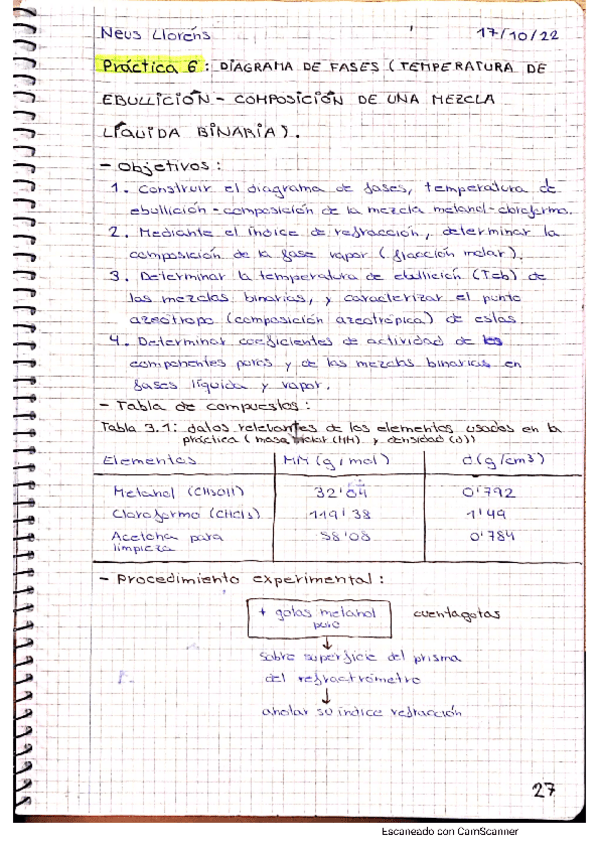 Neus Llorens 17/10/22
Práctica 6: DIAGRAMA DE FASES (TEMPERATURA DE
EBULLICIÓN - COMPOSICIÓN DE UNA MEZCLA
LÍQUIDA BINARIA).
- Objetivos:
1. Construir el diagrama de fases, temperatura de
ebullición - composición de la mezcla metanol-cloroformo.
2. Mediante el índice de refracción, determinar la
composición de la fase vapor (fracción molar).
3. Determinar la temperatura de ebullición (Teb) de
las mezclas binarias, y caracterizar el punto
azeótropo (composición azeotrópica) de estas.
4. Determinar coeficientes de actividad de los
componentes puros y de las mezclas binarias en
fases líquida y vapor.
- Tabla de compuestos:
Tabla 3.1: datos relevantes de los elementos usados en la
práctica (masa molar (MM) y densidad (d))
Elementos MM (g/mol) d (g/cm3)
Metanol (CH3OH) 32'04 0'792
Cloroformo (CHCl3) 119'38 1'49
Acetona para 58'08 0'784
limpieza
- Procedimiento experimental:
+ gotas metanol cuentagotas
puro
↓
sobre superficie del prisma
del refractrómetro
↓
anotar su índice refracción
27
Escaneado con CamScanner